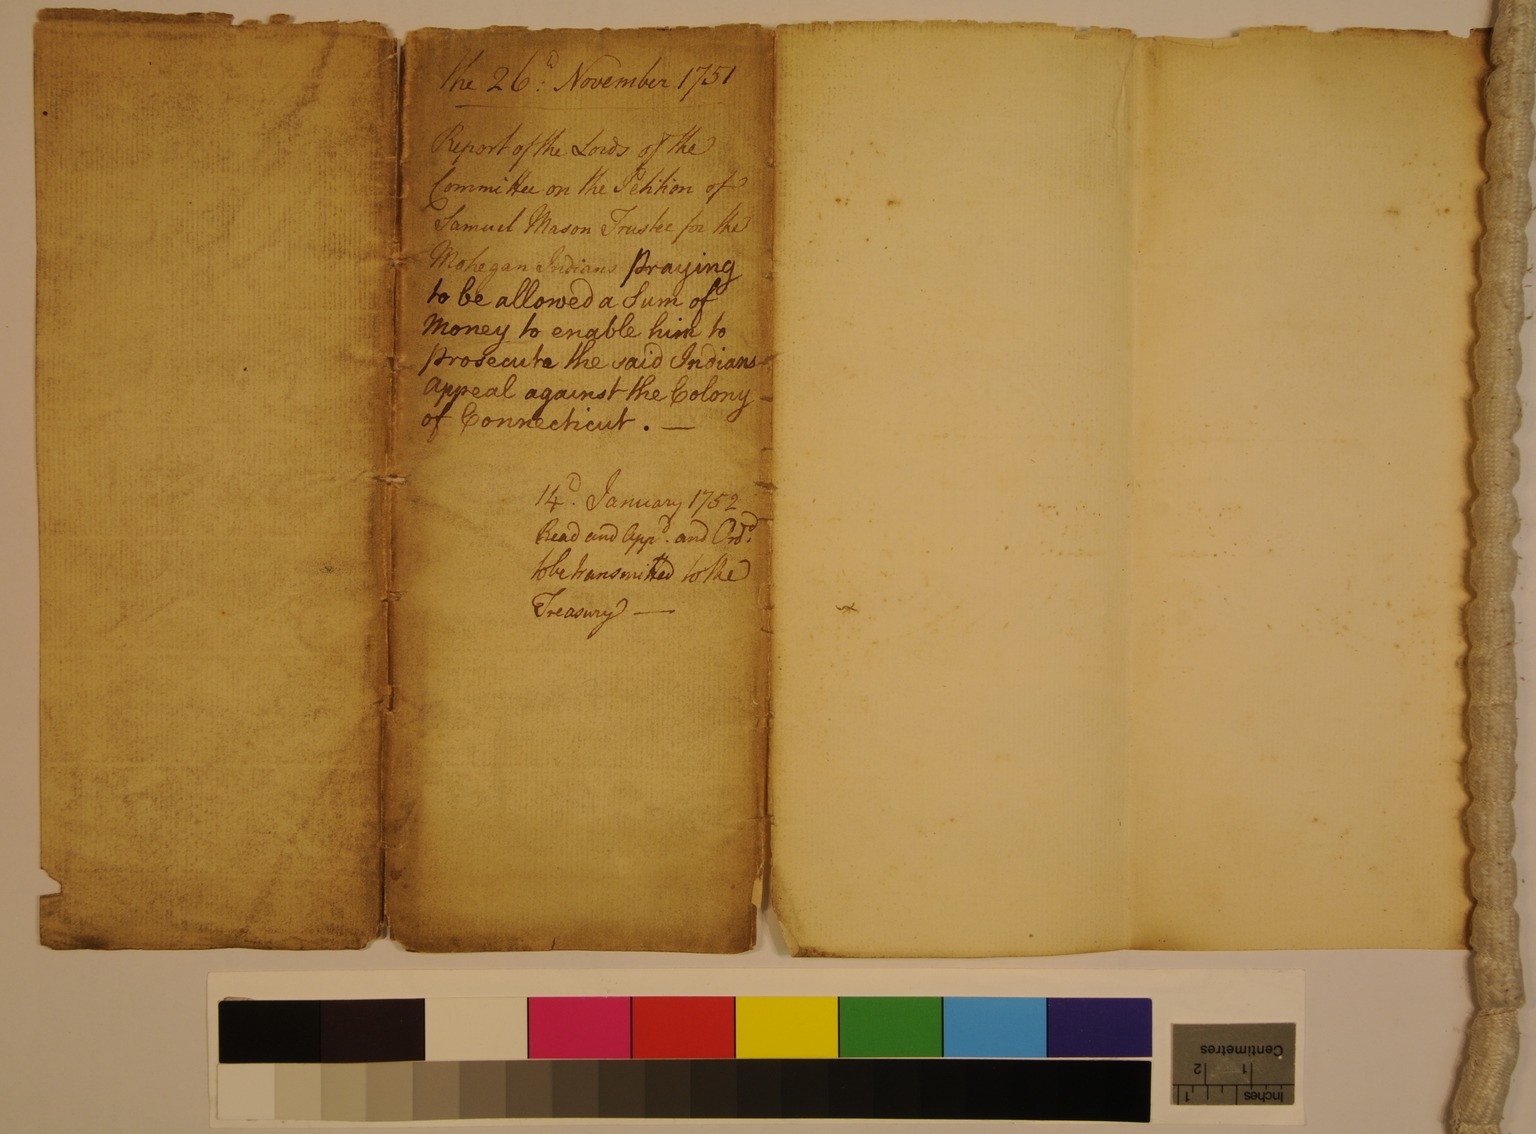 the 26.th November 1751
Report of the Lords of the
Committee on the Petition of
Samuel Mason Trustee for the
Mohegan Indians praying
to be allowed a Sum of
Money to enable him to
prosecute the said Indians
appeal against the Colony
of Connecticut. —
14.th January 1752
Read and App.d and Ord.d
to be transmitted to the
Treasury —
Centimetres
1 2
Inches
1